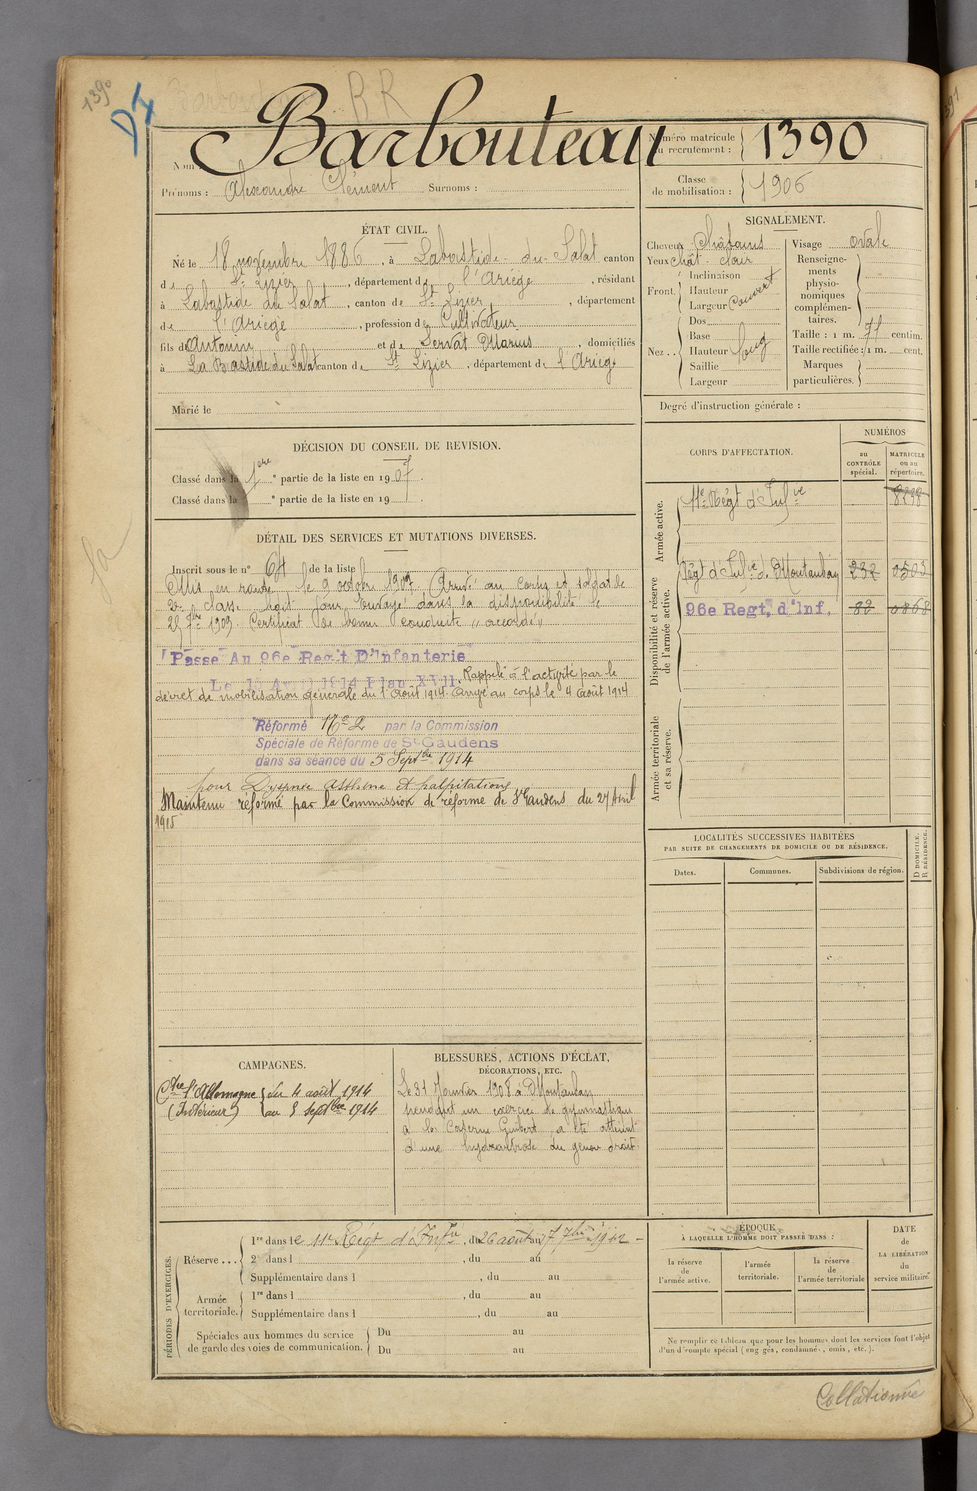 1390
Barbouteau
BR
Nom :
Prénoms : Alexandre Clément Surnoms :
Numéro matricule du recrutement : 1390
Classe de mobilisation : 1906
ÉTAT CIVIL.
Né le 18 novembre 1886, à Labastide du Salat canton
de St Lizier, département de l'Ariège, résidant
à Labastide du Salat, canton de St Lizier, département
de l'Ariège, profession de Cultivateur
fils de Antonin et de Servat Maria, domiciliés
à La Bastide du Salat canton de St Lizier, département de l'Ariège
Marié le
SIGNALEMENT.
Cheveux Châtains
Yeux chât. clair
Front. Inclinaison
Hauteur
Largeur Couvert
Nez. Dos
Base
Hauteur long
Saillie
Largeur
Visage ovale
Renseignements physionomiques complémentaires.
Taille : 1 m. 71 centim.
Taille rectifiée : 1 m. cent.
Marques particulières.
Degré d'instruction générale :
DÉCISION DU CONSEIL DE REVISION.
Classé dans la 1ère partie de la liste en 1907.
Classé dans la partie de la liste en 19 .
DÉTAIL DES SERVICES ET MUTATIONS DIVERSES.
Inscrit sous le n° 64 de la liste
Mis en route le 9 octobre 1907. Arrivé au corps et soldat de
2e classe dudit jour. Envoyé dans la disponibilité le
25 7bre 1909. Certificat de bonne conduite "accordé"
Passé Au 96e Reg't D'Infanterie
Le 15 Avril 1914 Plan XVII. Rappelé à l'activité par le
décret de mobilisation générale du 1er Août 1914. Arrivé au corps le 4 août 1914
Réformé N° 2 par la Commission
Spéciale de Réforme de St Gaudens
dans sa séance du 5 Septbre 1914
pour Dyspnée asthme et palpitations
Maintenu réformé par la Commission de réforme de St Gaudens du 27 Avril
1915
CORPS D'AFFECTATION.
NUMÉROS
au CONTRÔLE spécial.
MATRICULE ou au répertoire.
Armée active.
11e Régt d'Infie 8238
Disponibilité et réserve de l'armée active.
Régt d'Infie de Montauban 232 0505
96e Regt, d'Inf. 82 0868
Armée territoriale et sa réserve.
LOCALITÉS SUCCESSIVES HABITÉES
PAR SUITE DE CHANGEMENTS DE DOMICILE OU DE RÉSIDENCE.
Dates.
Communes.
Subdivisions de région.
D DOMICILE. R RÉSIDENCE.
CAMPAGNES.
Ctre l'Allemagne du 4 août 1914
(Intérieur) au 5 Septbre 1914
BLESSURES, ACTIONS D'ÉCLAT,
DÉCORATIONS, ETC.
Le 31 Janvier 1908 à Montauban
pendant un exercice de gymnastique
à la Caserne Guibert a été atteint
d'une hydarthrose du genou droit
PÉRIODES D'EXERCICES.
Réserve ... 1re dans le 11e Régt d'Infie, du 26 août au 7 7bre 1912
2e dans l , du au
Supplémentaire dans l , du au
Armée territoriale. 1re dans l , du au
Supplémentaire dans l , du au
Spéciales aux hommes du service
de garde des voies de communication. Du au
Du au
ÉPOQUE
À LAQUELLE L'HOMME DOIT PASSER DANS :
la réserve de l'armée active.
l'armée territoriale.
la réserve de l'armée territoriale
DATE de LA LIBÉRATION du service militaire.
Ne remplir ce tableau que pour les hommes dont les services font l'objet
d'un décompte spécial (engagés, condamnés, omis, etc.).
Collationné